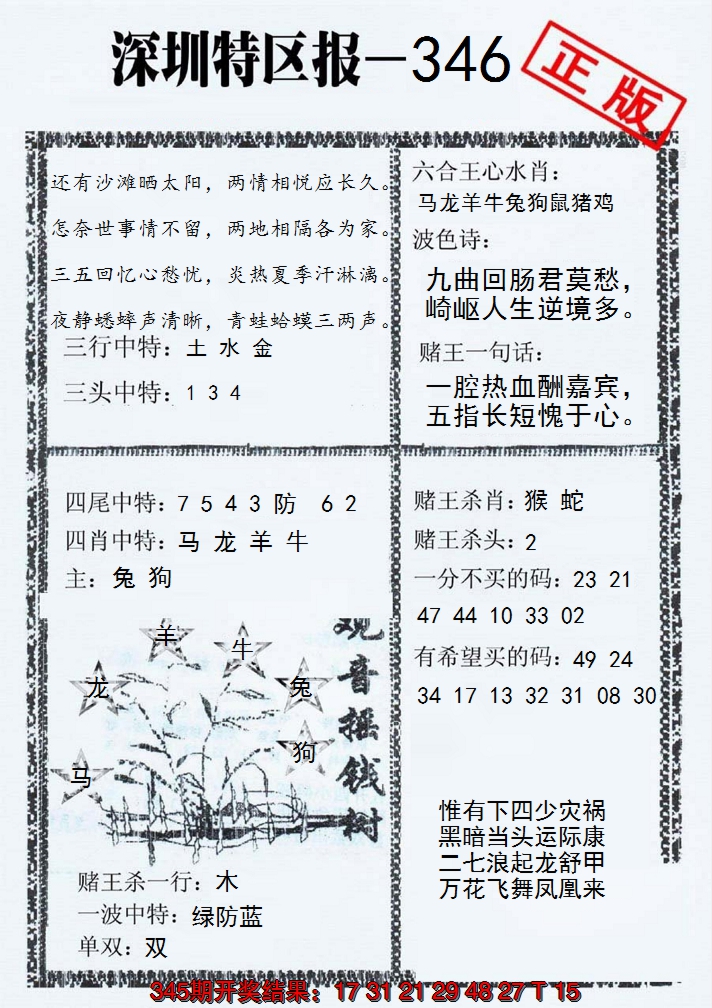 深圳特区报—346
正版
还有沙滩晒太阳，两情相悦应长久。
怎奈世事情不留，两地相隔各为家。
三五回忆心愁忧，炎热夏季汗淋漓。
夜静蟋蟀声清晰，青蛙蛤蟆三两声。
三行中特：土 水 金
三头中特：1 3 4
六合王心水肖：
马龙羊牛兔狗鼠猪鸡
波色诗：
九曲回肠君莫愁，
崎岖人生逆境多。
赌王一句话：
一腔热血酬嘉宾，
五指长短愧于心。
四尾中特：7 5 4 3 防 6 2
四肖中特：马 龙 羊 牛
主：兔 狗
羊
牛
龙
兔
狗
马
观音摇钱树
赌王杀一行：木
一波中特：绿防蓝
单双：双
赌王杀肖：猴 蛇
赌王杀头：2
一分不买的码：23 21
47 44 10 33 02
有希望买的码：49 24
34 17 13 32 31 08 30
惟有下四少灾祸
黑暗当头运际康
二七浪起龙舒甲
万花飞舞凤凰来
345期开奖结果：17 31 21 29 48 27 T 15